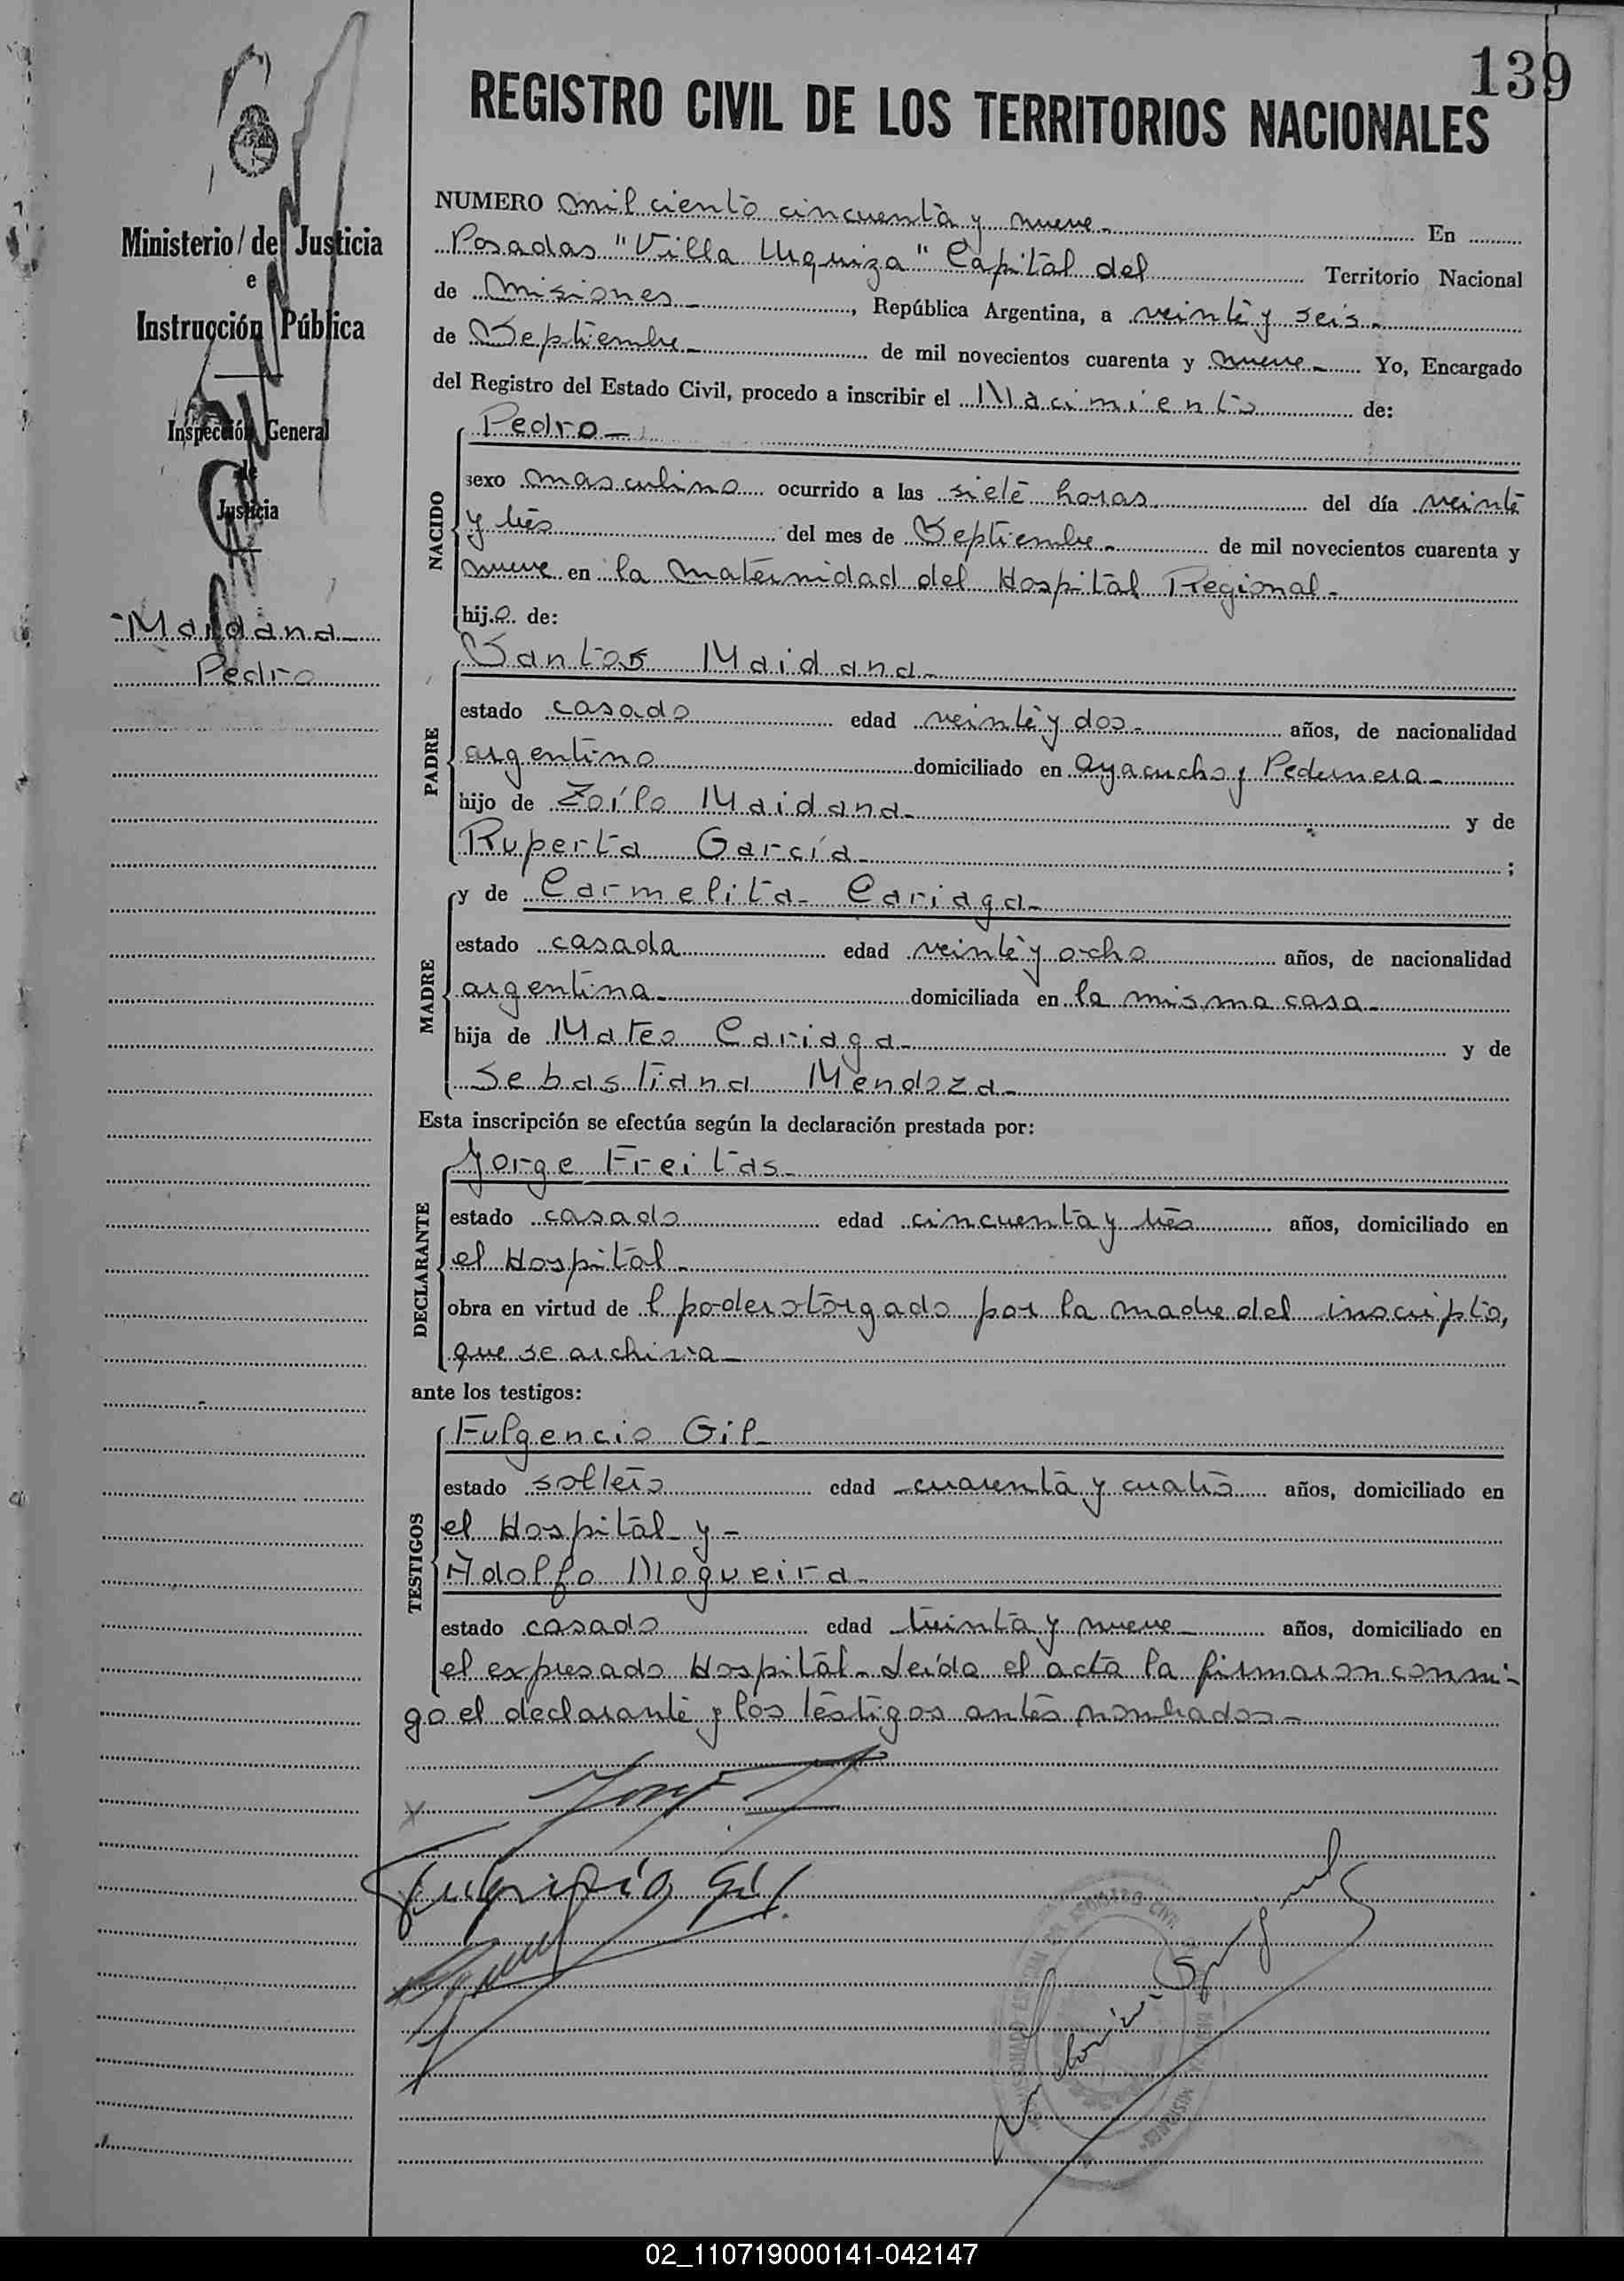 139
REGISTRO CIVIL DE LOS TERRITORIOS NACIONALES
Ministerio de Justicia
e
Instrucción Pública
Inspección General
de
Justicia
Maidana
Pedro
NUMERO mil ciento cincuenta y nueve En
Posadas "Villa Urquiza" Capital del Territorio Nacional
de Misiones, República Argentina, a veinte y seis
de Septiembre de mil novecientos cuarenta y nueve Yo, Encargado
del Registro del Estado Civil, procedo a inscribir el Nacimiento de:
Pedro
NACIDO
sexo masculino ocurrido a las siete horas del día veinte
y tres del mes de Septiembre de mil novecientos cuarenta y
nueve en la maternidad del Hospital Regional
hijo de:
Santos Maidana
PADRE
estado casado edad veinte y dos años, de nacionalidad
argentino domiciliado en Ayacucho y Pedernera
hijo de Zoílo Maidana y de
Ruperta García ;
y de Carmelita Cariaga
MADRE
estado casada edad veinte y ocho años, de nacionalidad
argentina domiciliada en la misma casa
hija de Mateo Cariaga y de
Sebastiana Mendoza
Esta inscripción se efectúa según la declaración prestada por:
Jorge Freitas
DECLARANTE
estado casado edad cincuenta y tres años, domiciliado en
el Hospital
obra en virtud de l poder otorgado por la madre del inscripto,
que se archiva
ante los testigos:
Fulgencio Gil
TESTIGOS
estado soltero edad cuarenta y cuatro años, domiciliado en
el Hospital y
Adolfo Nogueira
estado casado edad treinta y nueve años, domiciliado en
el expresado Hospital. Leída el acta la firmaron conmi-
go el declarante y los testigos antes nombrados
Fulgencio Gil
02_110719000141-042147